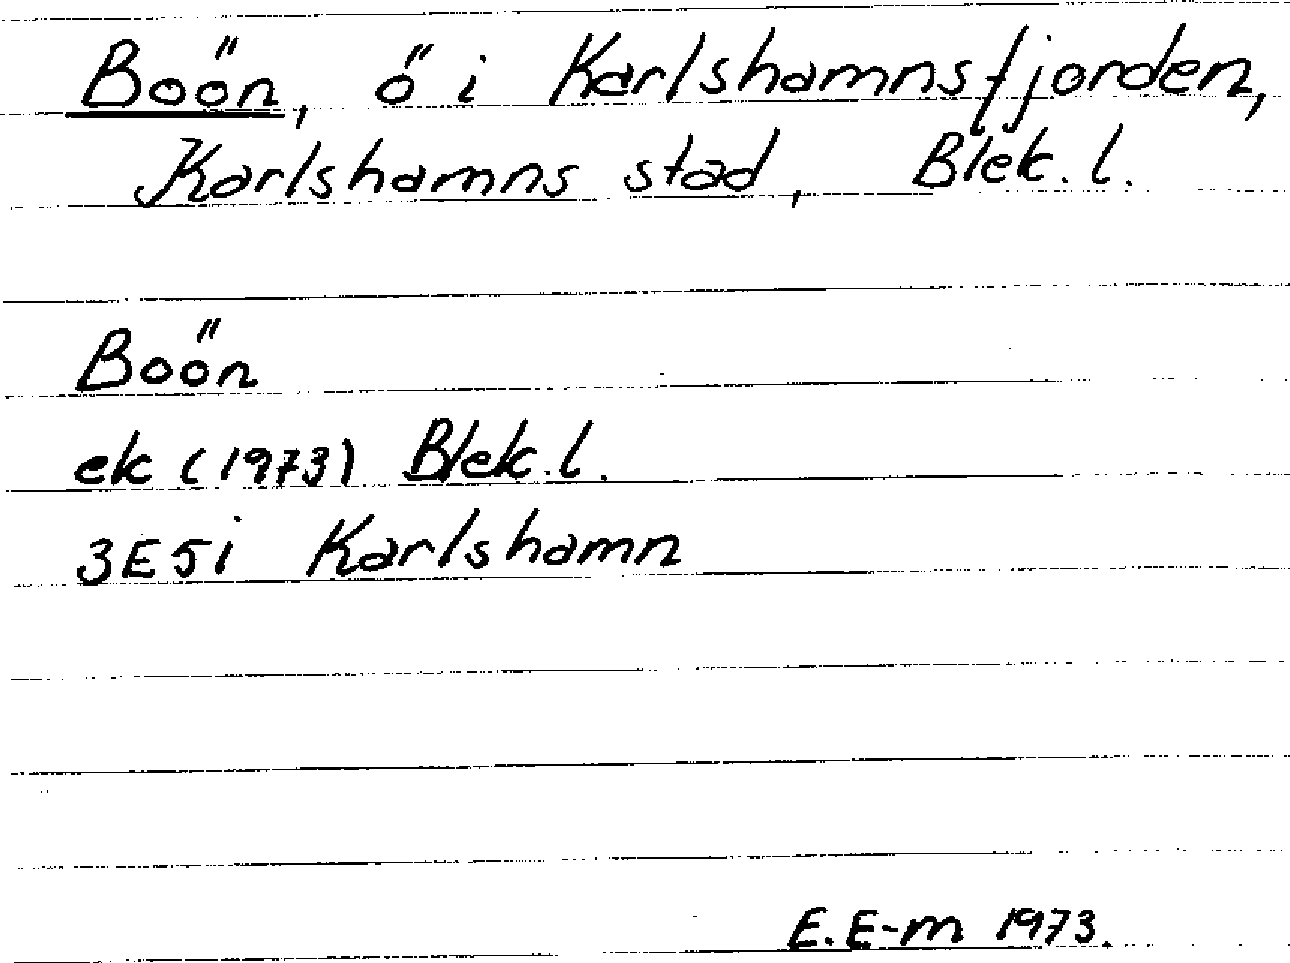 Boön, ö i Karlshamnsfjorden,
Karlshamns stad, Blek. l.
Boön
ek (1973) Blek. l.
3E5i Karlshamn
E. E-m 1973.